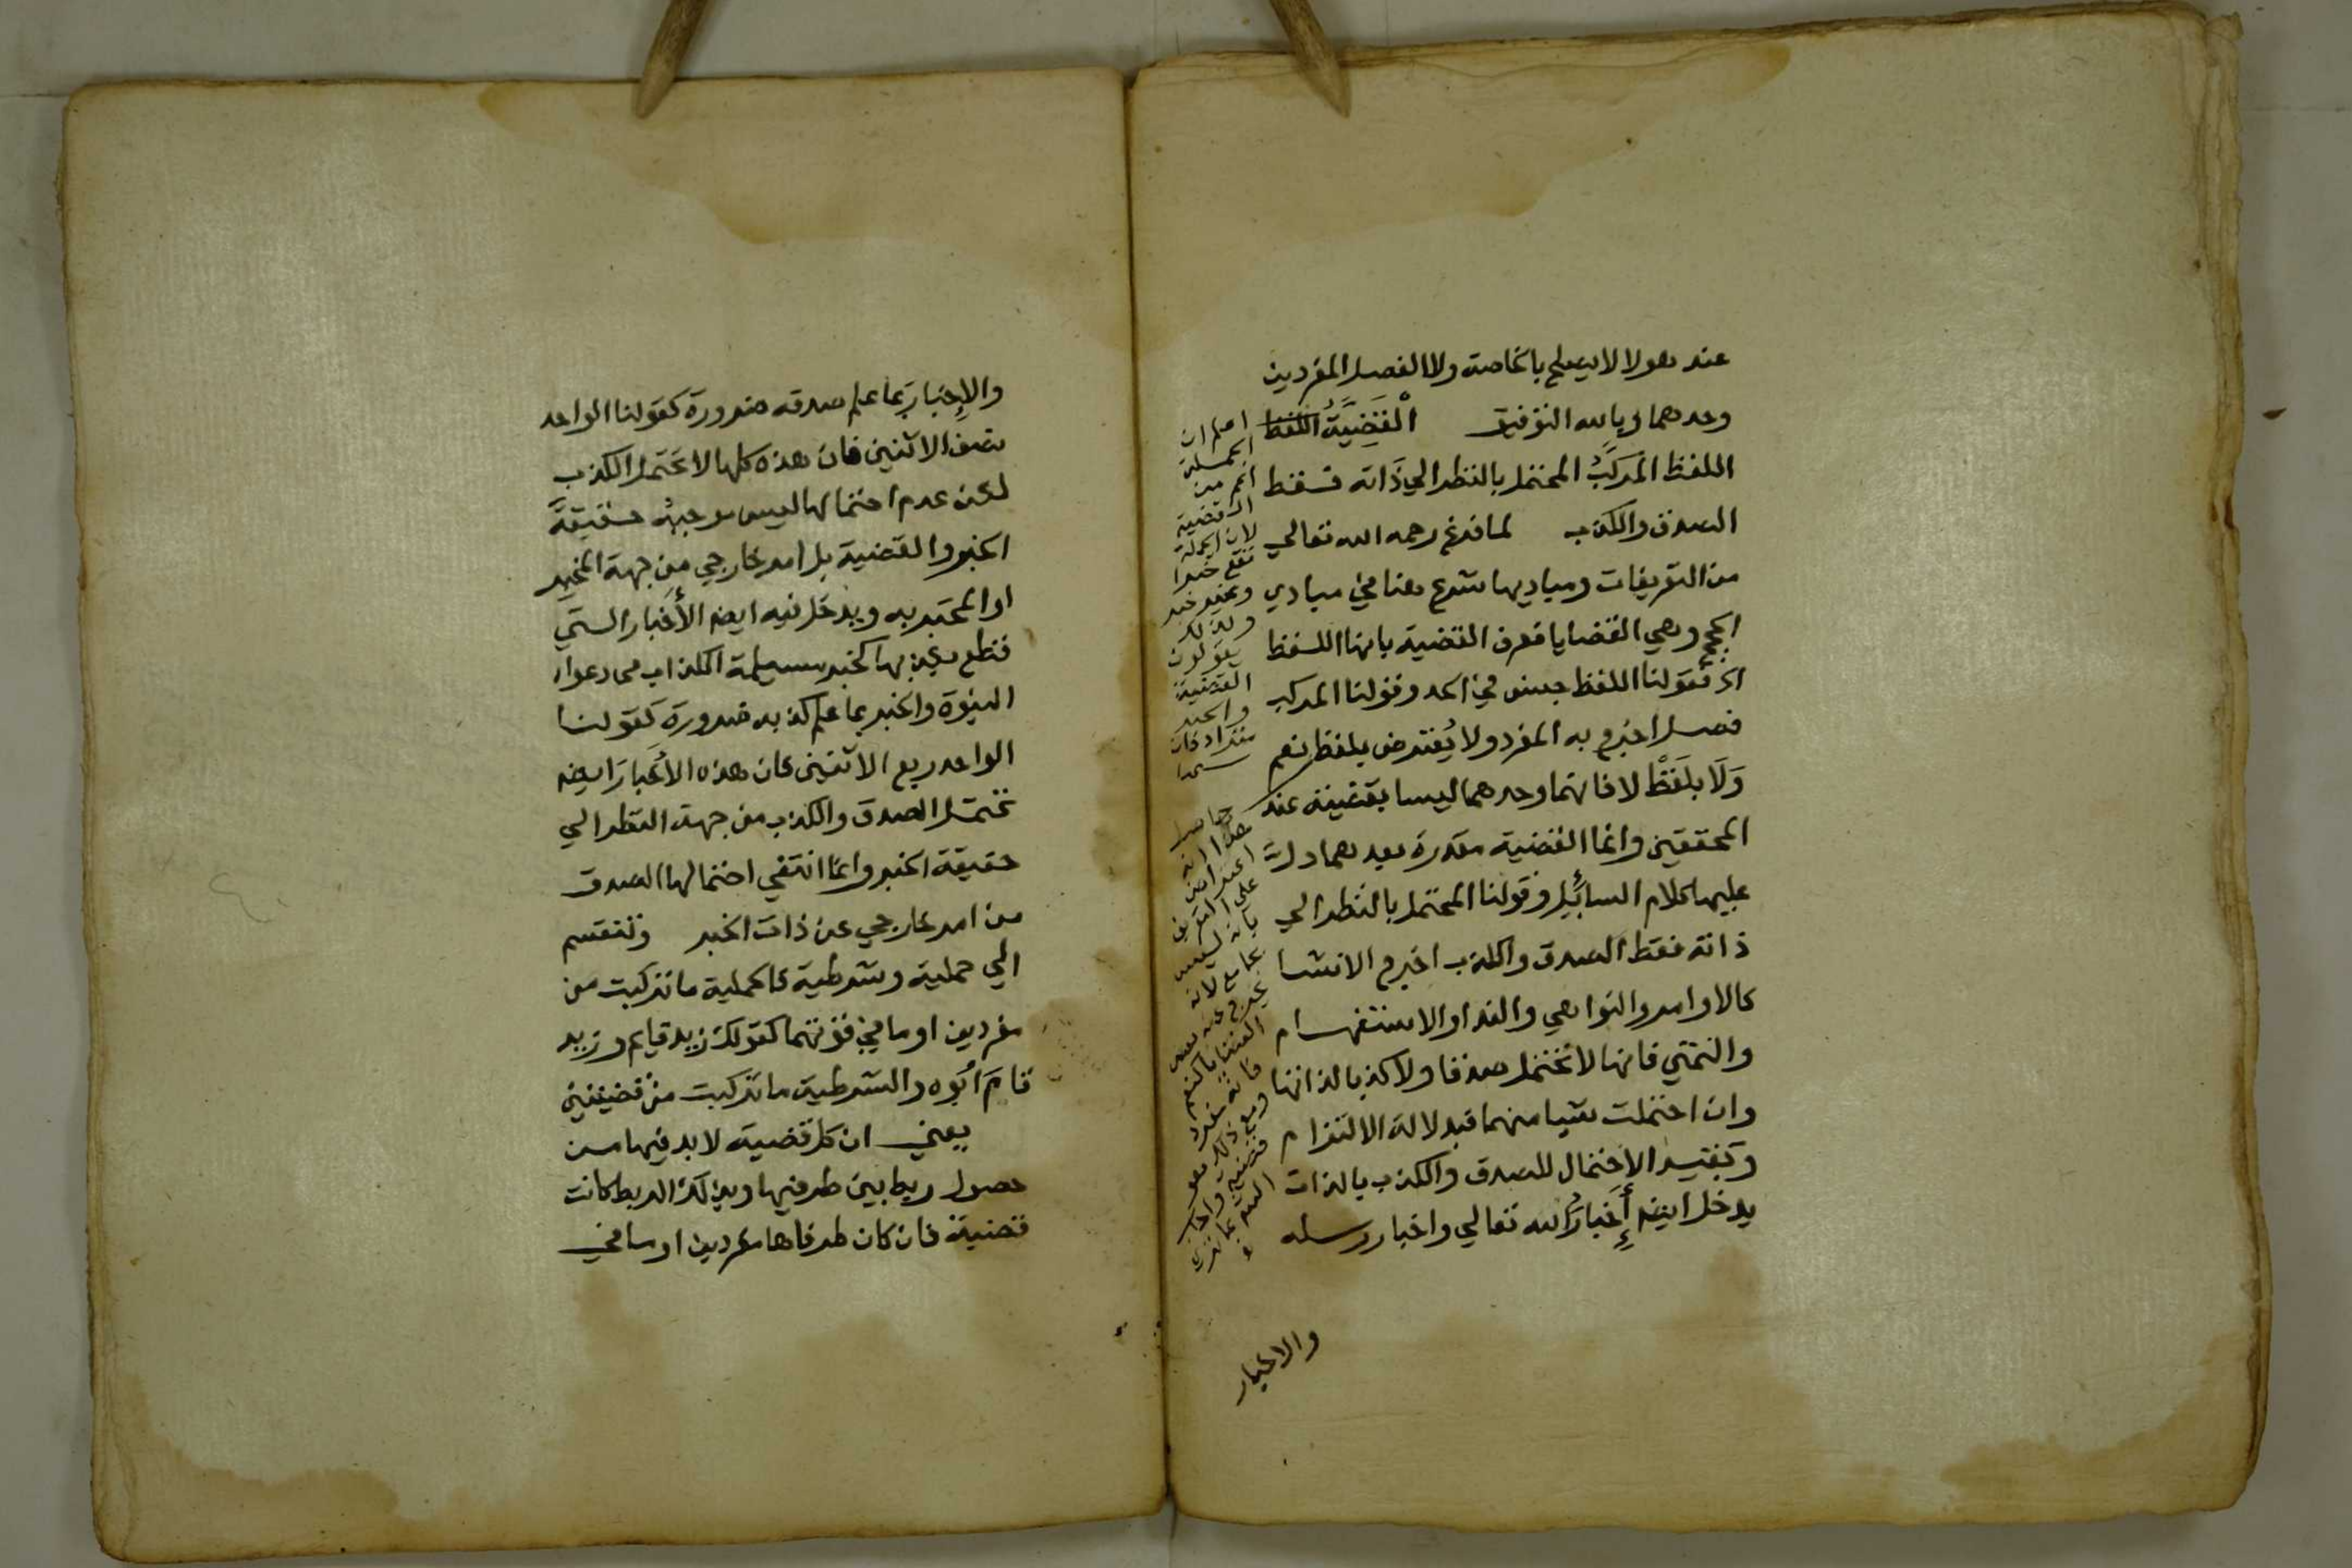 عند هولا لا يصلح بالخاصة ولا الفصل المفردين
وحدهما وبالله التوفيق الْقَضِيَّةُ اللفظ
اللفظ المركَّبُ المحتمل بالنظر الي ذَاته فقط
الصدق والكذب لما فرغ رحمه الله تعالي
من التعريفات ومباديها شرع هنا في مبادي
الحجج وهي القضايا فعرف القضية بانها اللفظ
الخ فقولنا اللفظ جنس في الحد وقولنا المركب
فصل اخرج به المفرد ولا يُعترض بلفظ نعم
وَلَا بلَفظْ لا فانهما وحدهما ليسا بقضية عند
المحققين وانما القضية مقدرة بعدهما دلَّ
عليها كلام السائِل وقولنا المحتمل بالنظر الي
ذاته فقط الصدق والكذب اخرج الانشا
كالاوامر والنواهي والندا والاستفهام
والتمني فانها لا تحتمل صدقا ولا كذبا لذاتها
وان احتملت شيا منهما فبدلالة الالتزام
وبتقييد الاحتمال للصدق والكذب بالذات
يدخل ايضا أَخبارُ الله تعالي واخبار رسله
والاخبار
اعلم ان
الجملة
اعم من
القضية
لان الجملة
تقع خبرا
وغير خبر
ولذلك
يقولون
القضية
والخبر
مترادفان
حاصل
هذا انه
اعتراض
على التعريف
بانه ليس
جامع لانه
والإِخبار بِما علم صدقه ضرورة كقولنا الواحد
نصف الاثنين فان هذه كلها لا تحتمل الكذب
لكن عدم احتمالها ليس موجبهُ حقيقةَ
الخبر والقضية بل امر خارجي من جهة المخبِر
او المخبَر به ويدخل فيه ايضا الأَخبار التي
قطع بكذبها كخبر مسيلمة الكذاب في دعواه
النبوة والخبر بما علم كذبه ضرورة كقولنا
الواحد ربع الاثنين فان هذه الأَخبارَ ايضا
تحتمل الصدق والكذب من جهة النظر الي
حقيقة الخبر وانما انتفي احتمالها الصدق
من امر خارجي عن ذات الخبر وتنقسم
الي حملية وشرطية فالحملية ما تركبت من
مفردين او ما في قوتهما كقولك زيد قايم وزيد
قامَ أبوه والشرطية ما تركبت من قضيتين
يعني ان كل قضية لا بد فيها من
حصول ربط بين طرفيها وبذلك الربط كانت
قضية فان كان طرفاها مفردين او ما في